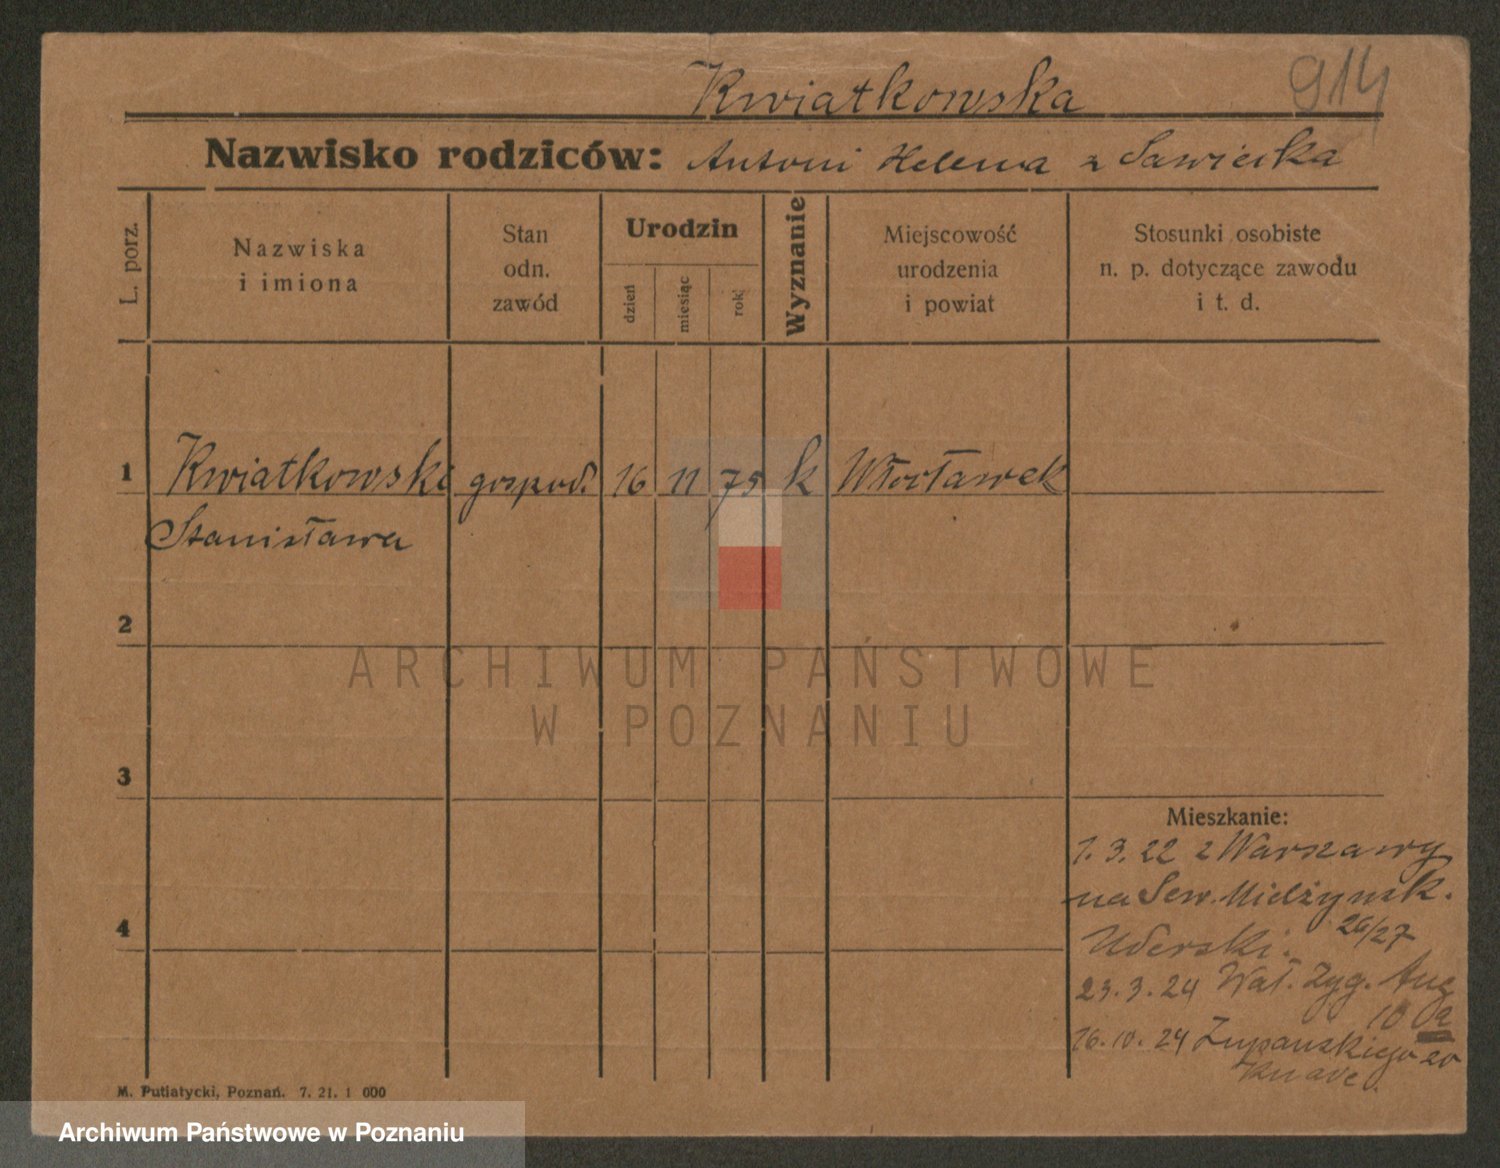 Kwiatkowska
914
Nazwisko rodziców: Antoni Helena z Sawicka
L. porz.
Nazwiska
i imiona
Stan
odn.
zawód
Urodzin
dzień
miesiąc
rok
Wyznanie
Miejscowość
urodzenia
i powiat
Stosunki osobiste
n. p. dotyczące zawodu
i t. d.
1 Kwiatkowski gospod. 16 11 75 k Włocławek
Stanisława
2
ARCHIWUM PAŃSTWOWE
W POZNANIU
3
Mieszkanie:
1. 3. 22 z Warszawy
na Sew. Mielżyńsk.
26/27
23. 3. 24 Wał. Zyg. Aug
10
16. 10. 24 Żupańskiego 20
4
M. Putiatycki, Poznań. 7. 21. 1 000
Archiwum Państwowe w Poznaniu